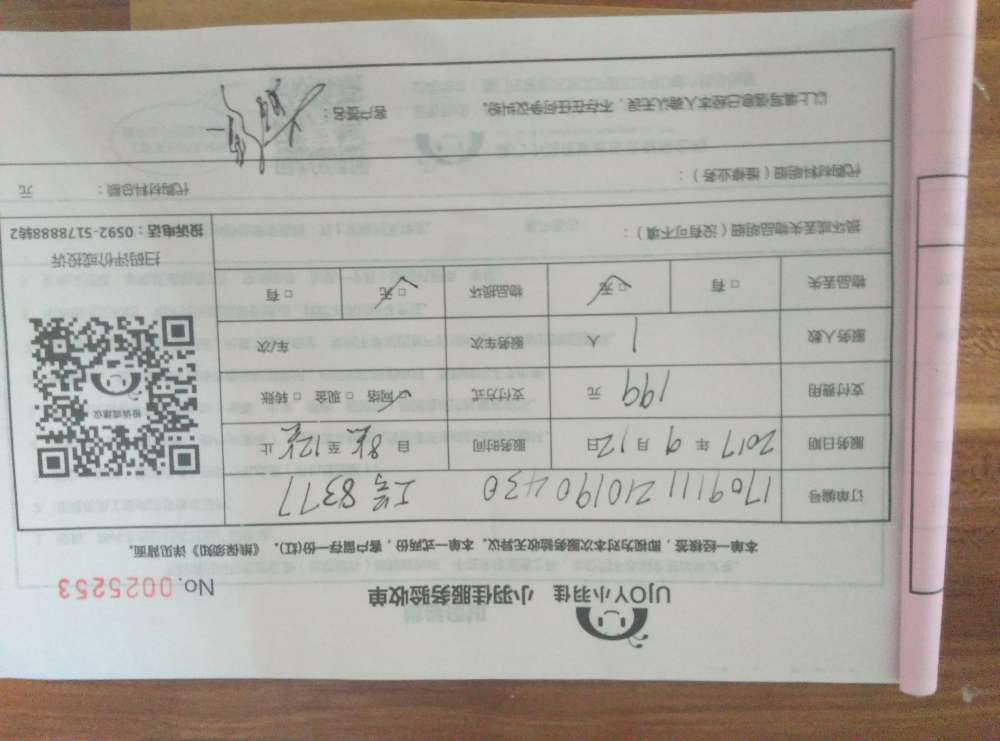 UJOY小羽佳 小羽佳服务验收单
No. 0025253
本单一经接签，即视为对本次服务验收无异议。本单一式两份，客户留存一份(红)。《维保须知》详见背面。
订单编号 1709111210190430 工号8377
服务日期 2017年9月12日 服务时间 自8点至12点止
支付费用 199元 支付方式 □网络 □现金 □转账
服务人数 1人 服务车次 车/次
物品丢失 □有 □无 物品损坏 □无 □有
投诉或建议
扫码评价或投诉
投诉电话：0592-5178888转2
损坏或丢失物品明细（没有可不填）：
代购材料明细（维修业务）：
代购材料总额： 元
以上填写信息已经本人确认无误，不存在任何争议纠纷。 客户签名：